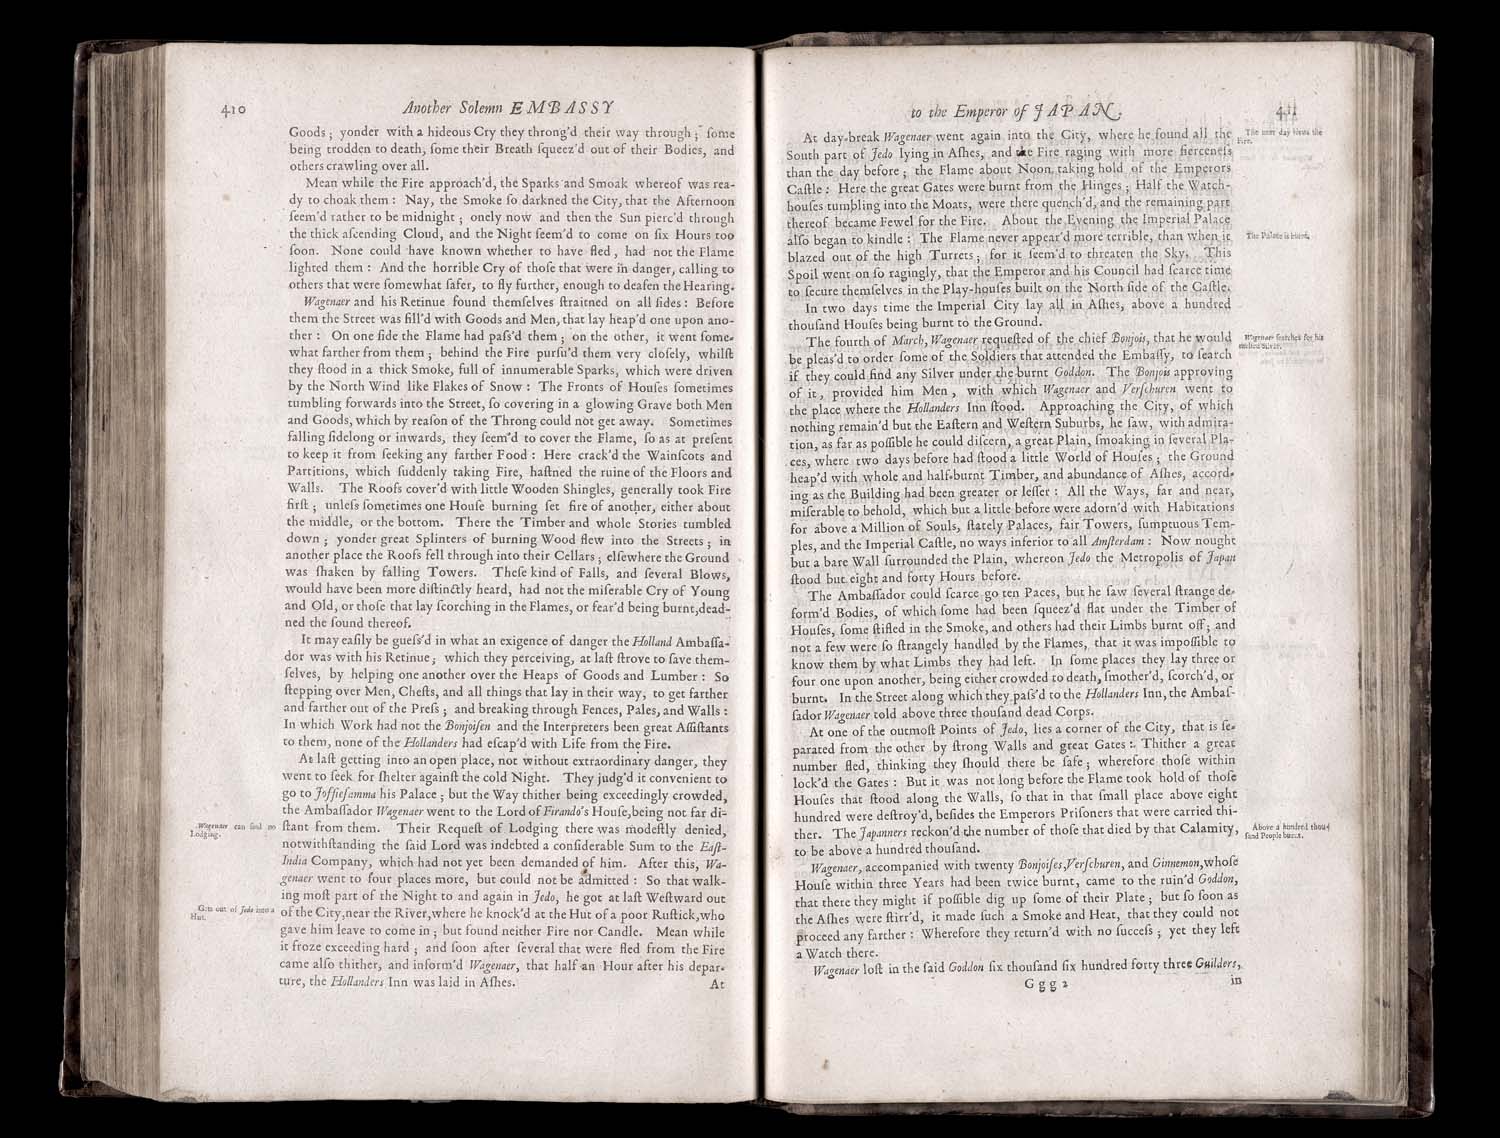 410
Another Solemn EMBASSY
Goods ; yonder with a hideous Cry they throng'd their way through ; ſome
being trodden to death, ſome their Breath ſqueez'd out of their Bodies, and
others crawling over all.
Mean while the Fire approach'd, the Sparks and Smoak whereof was rea-
dy to choak them : Nay, the Smoke ſo darkned the City, that the Afternoon
ſeem'd rather to be midnight ; onely now and then the Sun pierc'd through
the thick aſcending Cloud, and the Night ſeem'd to come on ſix Hours too
ſoon. None could have known whether to have fled, had not the Flame
lighted them : And the horrible Cry of thoſe that were in danger, calling to
others that were ſomewhat ſafer, to fly further, enough to deafen the Hearing.
Wagenaer and his Retinue found themſelves ſtraitned on all ſides : Before
them the Street was fill'd with Goods and Men, that lay heap'd one upon ano-
ther : On one ſide the Flame had paſs'd them ; on the other, it went ſome-
what farther from them ; behind the Fire purſu'd them very cloſely, whilſt
they ſtood in a thick Smoke, full of innumerable Sparks, which were driven
by the North Wind like Flakes of Snow : The Fronts of Houſes ſometimes
tumbling forwards into the Street, ſo covering in a glowing Grave both Men
and Goods, which by reaſon of the Throng could not get away. Sometimes
falling ſidelong or inwards, they ſeem'd to cover the Flame, ſo as at preſent
to keep it from ſeeking any farther Food : Here crack'd the Wainſcots and
Partitions, which ſuddenly taking Fire, haſtned the ruine of the Floors and
Walls. The Roofs cover'd with little Wooden Shingles, generally took Fire
firſt ; unleſs ſometimes one Houſe burning ſet fire of another, either about
the middle, or the bottom. There the Timber and whole Stories tumbled
down ; yonder great Splinters of burning Wood flew into the Streets ; in
another place the Roofs fell through into their Cellars ; elſewhere the Ground
was ſhaken by falling Towers. Theſe kind of Falls, and ſeveral Blows,
would have been more diſtinctly heard, had not the miſerable Cry of Young
and Old, or thoſe that lay ſcorching in the Flames, or fear'd being burnt,dead-
ned the ſound thereof.
It may eaſily be gueſs'd in what an exigence of danger the Holland Ambaſſa-
dor was with his Retinue ; which they perceiving, at laſt ſtrove to ſave them-
ſelves, by helping one another over the Heaps of Goods and Lumber : So
ſtepping over Men, Cheſts, and all things that lay in their way, to get farther
and farther out of the Preſs ; and breaking through Fences, Pales, and Walls :
In which Work had not the Bonjoiſen and the Interpreters been great Aſſiſtants
to them, none of the Hollanders had eſcap'd with Life from the Fire.
At laſt getting into an open place, not without extraordinary danger, they
went to ſeek for ſhelter againſt the cold Night. They judg'd it convenient to
go to Joſſieſamma his Palace ; but the Way thither being exceedingly crowded,
the Ambaſſador Wagenaer went to the Lord of Firando's Houſe,being not far di-
Wagenaer can find no
Lodging.
ſtant from them. Their Requeſt of Lodging there was modeſtly denied,
notwithſtanding the ſaid Lord was indebted a conſiderable Sum to the Eaſt-
India Company, which had not yet been demanded of him. After this, Wa-
genaer went to four places more, but could not be admitted : So that walk-
ing moſt part of the Night to and again in Jedo, he got at laſt Weſtward out
Gets out of Jedo into a
Hut.
of the City,near the River,where he knock'd at the Hut of a poor Ruſtick,who
gave him leave to come in ; but found neither Fire nor Candle. Mean while
it froze exceeding hard ; and ſoon after ſeveral that were fled from the Fire
came alſo thither, and inform'd Wagenaer, that half an Hour after his depar-
ture, the Hollanders Inn was laid in Aſhes.
At
to the Emperor of JAPAN.
411
At day-break Wagenaer went again into the City, where he found all the
The next day views the
Fire.
South part of Jedo lying in Aſhes, and the Fire raging with more fierceneſs
than the day before ; the Flame about Noon taking hold of the Emperors
Caſtle : Here the great Gates were burnt from the Hinges ; Half the Watch-
houſes tumbling into the Moats, were there quench'd, and the remaining part
thereof became Fewel for the Fire. About the Evening the Imperial Palace
alſo began to kindle : The Flame never appear'd more terrible, than when it
The Palace is burnt.
blazed out of the high Turrets ; for it ſeem'd to threaten the Sky. This
Spoil went on ſo ragingly, that the Emperor and his Council had ſcarce time
to ſecure themſelves in the Play-houſes built on the North ſide of the Caſtle.
In two days time the Imperial City lay all in Aſhes, above a hundred
thouſand Houſes being burnt to the Ground.
The fourth of March, Wagenaer requeſted of the chief Bonjois, that he would
Wagenaer ſearches for his
melted Silver.
be pleas'd to order ſome of the Soldiers that attended the Embaſſy, to ſearch
if they could find any Silver under the burnt Goddon. The Bonjois approving
of it, provided him Men, with which Wagenaer and Verſchuren went to
the place where the Hollanders Inn ſtood. Approaching the City, of which
nothing remain'd but the Eaſtern and Weſtern Suburbs, he ſaw, with admira-
tion, as far as poſſible he could diſcern, a great Plain, ſmoaking in ſeveral Pla-
ces, where two days before had ſtood a little World of Houſes ; the Ground
heap'd with whole and half-burnt Timber, and abundance of Aſhes, accord-
ing as the Building had been greater or leſſer : All the Ways, far and near,
miſerable to behold, which but a little before were adorn'd with Habitations
for above a Million of Souls, ſtately Palaces, fair Towers, ſumptuous Tem-
ples, and the Imperial Caſtle, no ways inferior to all Amſterdam : Now nought
but a bare Wall ſurrounded the Plain, whereon Jedo the Metropolis of Japan
ſtood but eight and forty Hours before.
The Ambaſſador could ſcarce go ten Paces, but he ſaw ſeveral ſtrange de-
form'd Bodies, of which ſome had been ſqueez'd flat under the Timber of
Houſes, ſome ſtifled in the Smoke, and others had their Limbs burnt off ; and
not a few were ſo ſtrangely handled by the Flames, that it was impoſſible to
know them by what Limbs they had left. In ſome places they lay three or
four one upon another, being either crowded to death, ſmother'd, ſcorch'd, or
burnt. In the Street along which they paſs'd to the Hollanders Inn, the Ambaſ-
ſador Wagenaer told above three thouſand dead Corps.
At one of the outmoſt Points of Jedo, lies a corner of the City, that is ſe-
parated from the other by ſtrong Walls and great Gates : Thither a great
number fled, thinking they ſhould there be ſafe ; wherefore thoſe within
lock'd the Gates : But it was not long before the Flame took hold of thoſe
Houſes that ſtood along the Walls, ſo that in that ſmall place above eight
hundred were deſtroy'd, beſides the Emperors Priſoners that were carried thi-
ther. The Japanners reckon'd the number of thoſe that died by that Calamity,
Above a hundred thou-
ſand People burnt.
to be above a hundred thouſand.
Wagenaer, accompanied with twenty Bonjoiſes,Verſchuren, and Ginnemon,whoſe
Houſe within three Years had been twice burnt, came to the ruin'd Goddon,
that there they might if poſſible dig up ſome of their Plate ; but ſo ſoon as
the Aſhes were ſtirr'd, it made ſuch a Smoke and Heat, that they could not
proceed any farther : Wherefore they return'd with no ſucceſs ; yet they left
a Watch there.
Wagenaer loſt in the ſaid Goddon ſix thouſand ſix hundred forty three Guilders,
Ggg 2
in